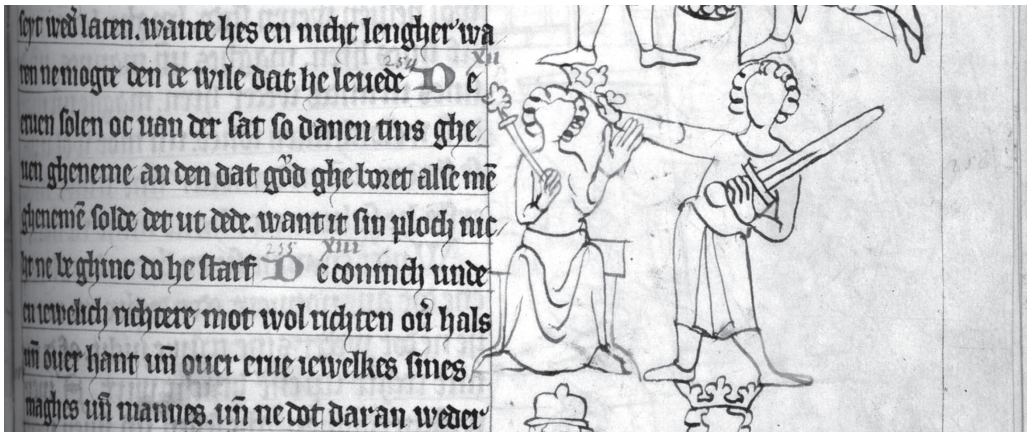 seyt wed̄ laten. wante hes en nicht lengher wa
ren ne mogte den de wile dat he levede XII De
eruen solen oc uan der sat so danen tins ghe
uen gheneme an den dat god ghe boret alse mē
ghenemē solde det ut dede. want it sin ploch nic
ht ne be ghinc do he starf XIII De coninch unde
en iewelich richtere mot wol richten ou̅ hals
un̄ ouer hant un̄ ouer erue iewelkes sines
maghes un̄ mannes. un̄ ne dot dar an weder
254
255